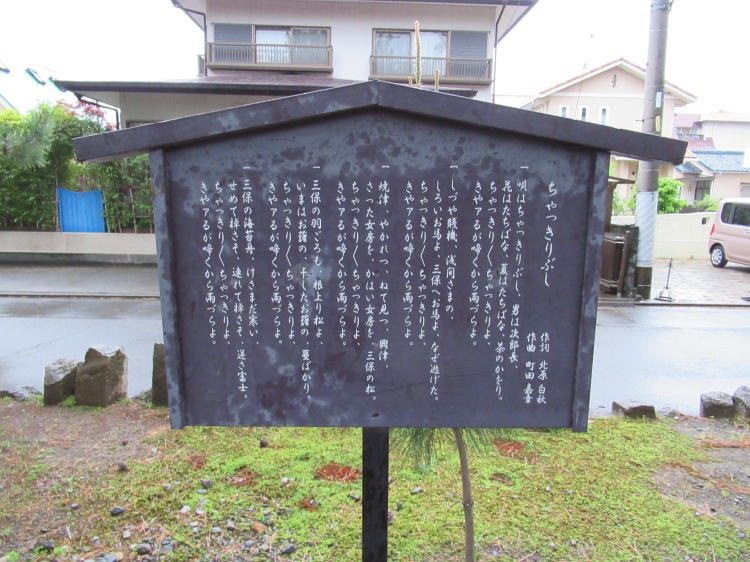 ちゃっきりぶし
作詞 北原 白秋
作曲 町田 嘉章
一 唄はちゃっきりぶし、男は次郎長、
花はたちばな、夏はたちばな、茶のかをり。
ちゃっきりちゃっきりちゃっきりよ、
きやアるが啼くから雨づらよ。
一 しづや賤機、浅間さまの、
しろいお馬よ、三保へお馬よ、なぜ逃げた。
ちゃっきり〱ちゃっきりよ、
きやアるが啼くから雨づらよ。
一 焼津、やかれつ、ねて見つ、興津、
さった女房を、かはい女房を、三保の松。
ちゃっきり〱ちゃっきりよ、
きやアるが啼くから雨づらよ。
一 三保の羽ごろも、根上り松よ、
いまはお藷の、干したお藷の、蔓ばかり。
ちゃっきり〱ちゃっきりよ、
きやアるが啼くから雨づらよ。
一 三保の海苔舟、けさまだ寒い、
せめて棹さそ、連れて棹さそ、逆さ富士。
ちゃっきり〱ちゃっきりよ、
きやアるが啼くから雨づらよ。